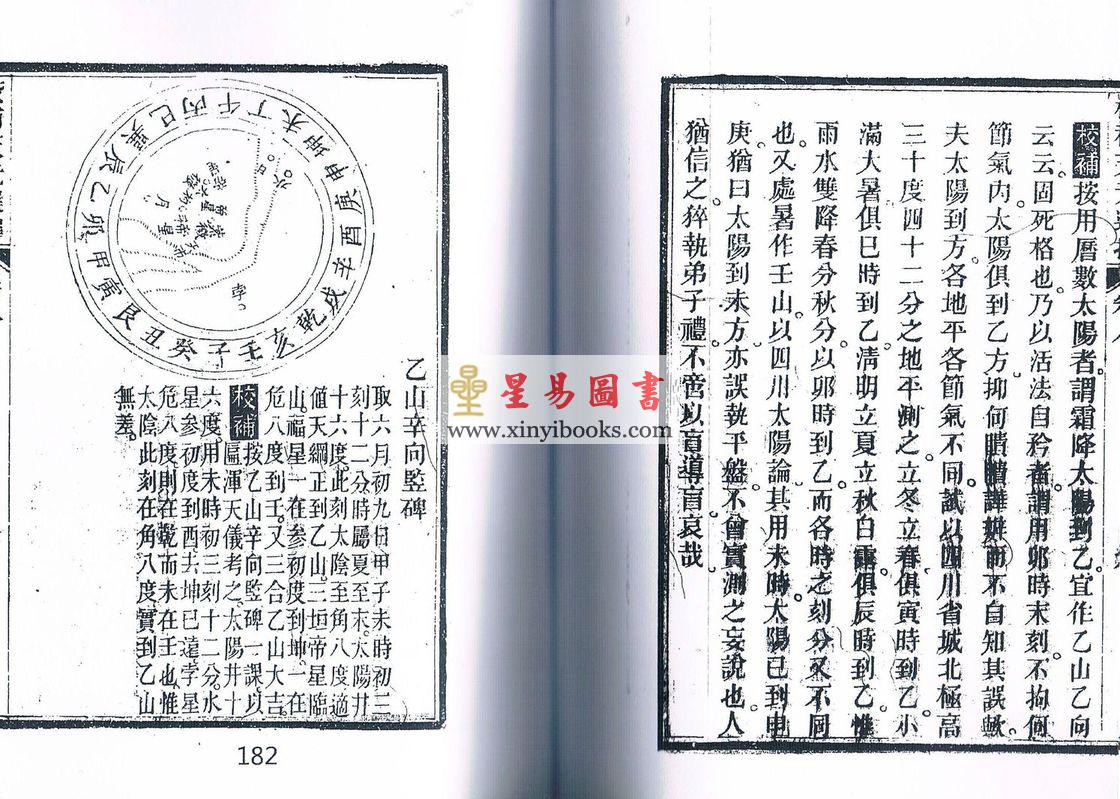 校補按用曆數太陽者謂霜降太陽到乙宜作乙山乙向
云云固死格也乃以活法自矜者謂用夘時末刻不拘何
節氣內太陽俱到乙方抑何瞶瞶譁辨而不自知其誤歟
夫太陽到方各地平各節氣不同試以四川省城北極高
三十度四十二分之地平測之立冬立春俱寅時到乙小
滿大暑俱巳時到乙淸明立夏立秋白露俱辰時到乙惟
雨水雙降春分秋分以夘時到乙而各時之刻分又不同
也又處暑作壬山以四川太陽論其用未時太陽已到申
庚猶曰太陽到未方亦誤執平盤不曾實測之妄說也人
猶信之猝執弟子禮不啻以盲導盲哀哉
乙山辛向監碑
取六月初九日甲子未時初三
刻十二分時屬夏至末太陽井
十六度此刻太陰至角八度適
値天綱正到乙山三垣帝星臨
山福星一在参初度到坤一在
危八度到壬又三合乙山大吉
校補按乙山辛向監碑一課以
扈渾天儀考之太陽井十
六度用未時初三刻十二分水
星参初度到酉去坤已遠孛星
危八度則在乾而未在壬也惟
太陰此刻在角八度實到乙山
無差
子癸丑艮寅甲卯乙辰巽巳丙午丁未坤申庚酉辛戌乾亥壬
月
孛
水
星易圖書
www.xinyibooks.com
182